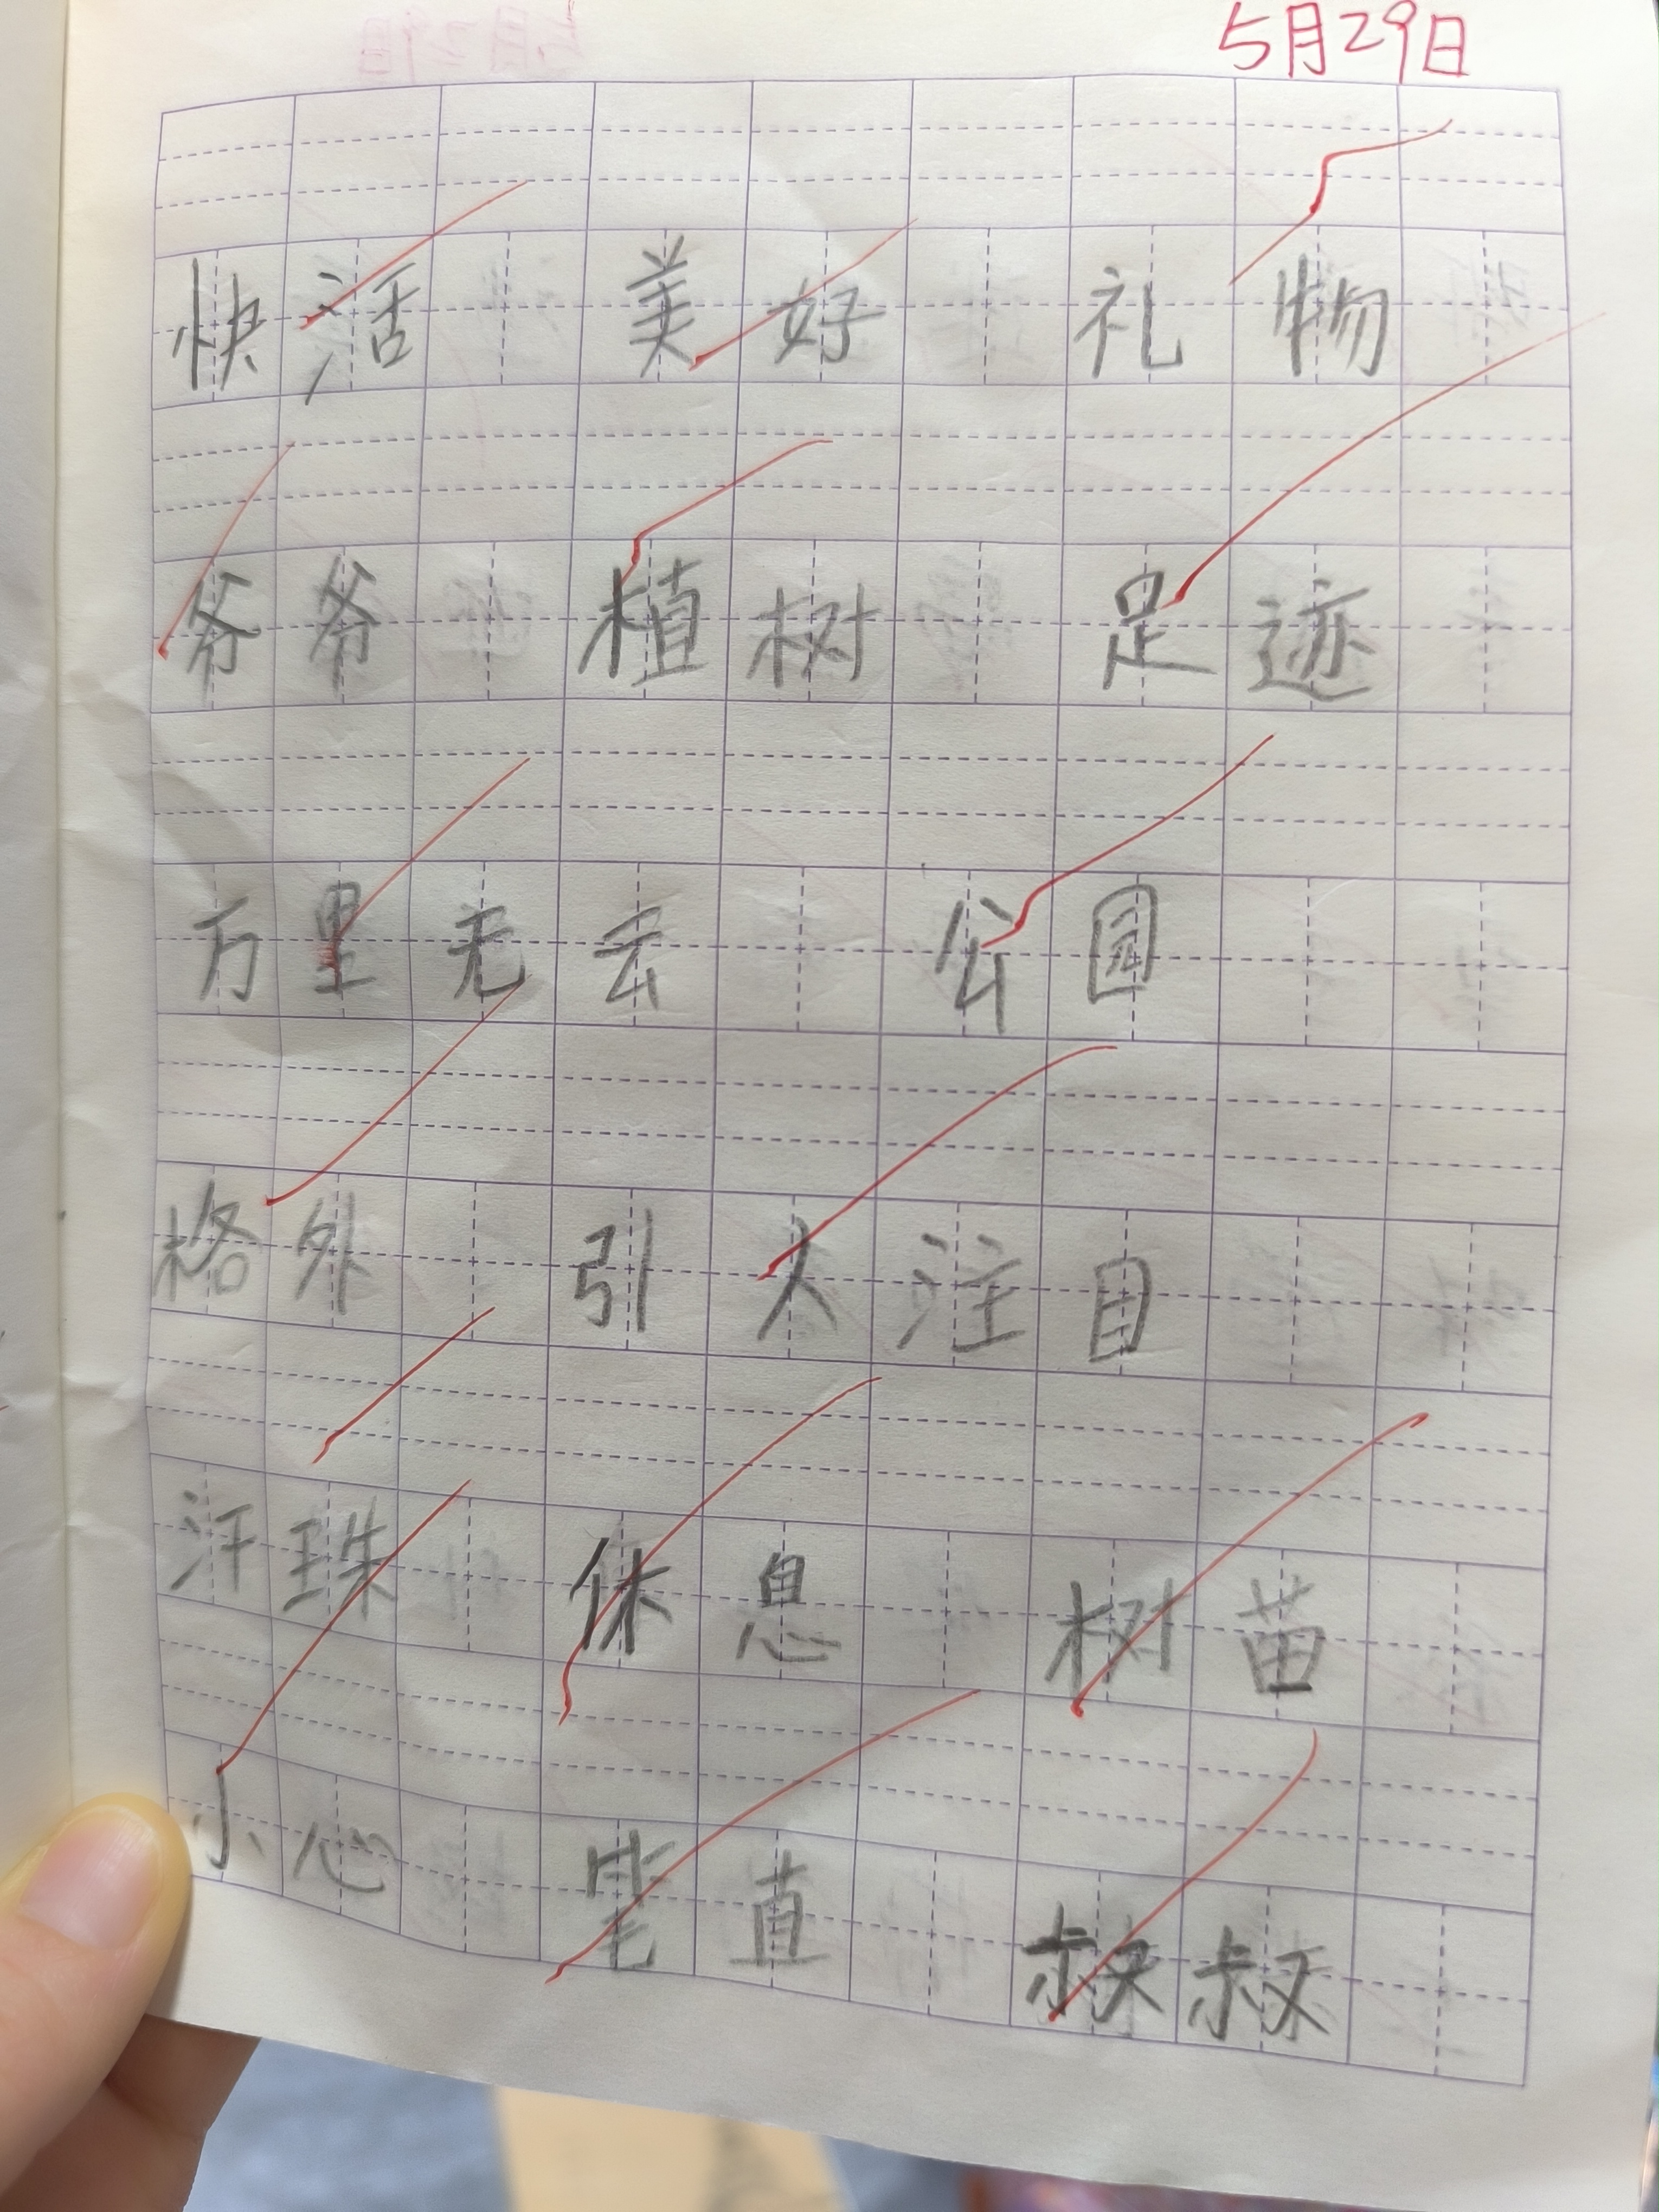 5月29日
快活 美好 礼物
爷爷 植树 足迹
万里无云 公园
格外 引人注目
汗珠 休息 树苗
小心 笔直
叔叔